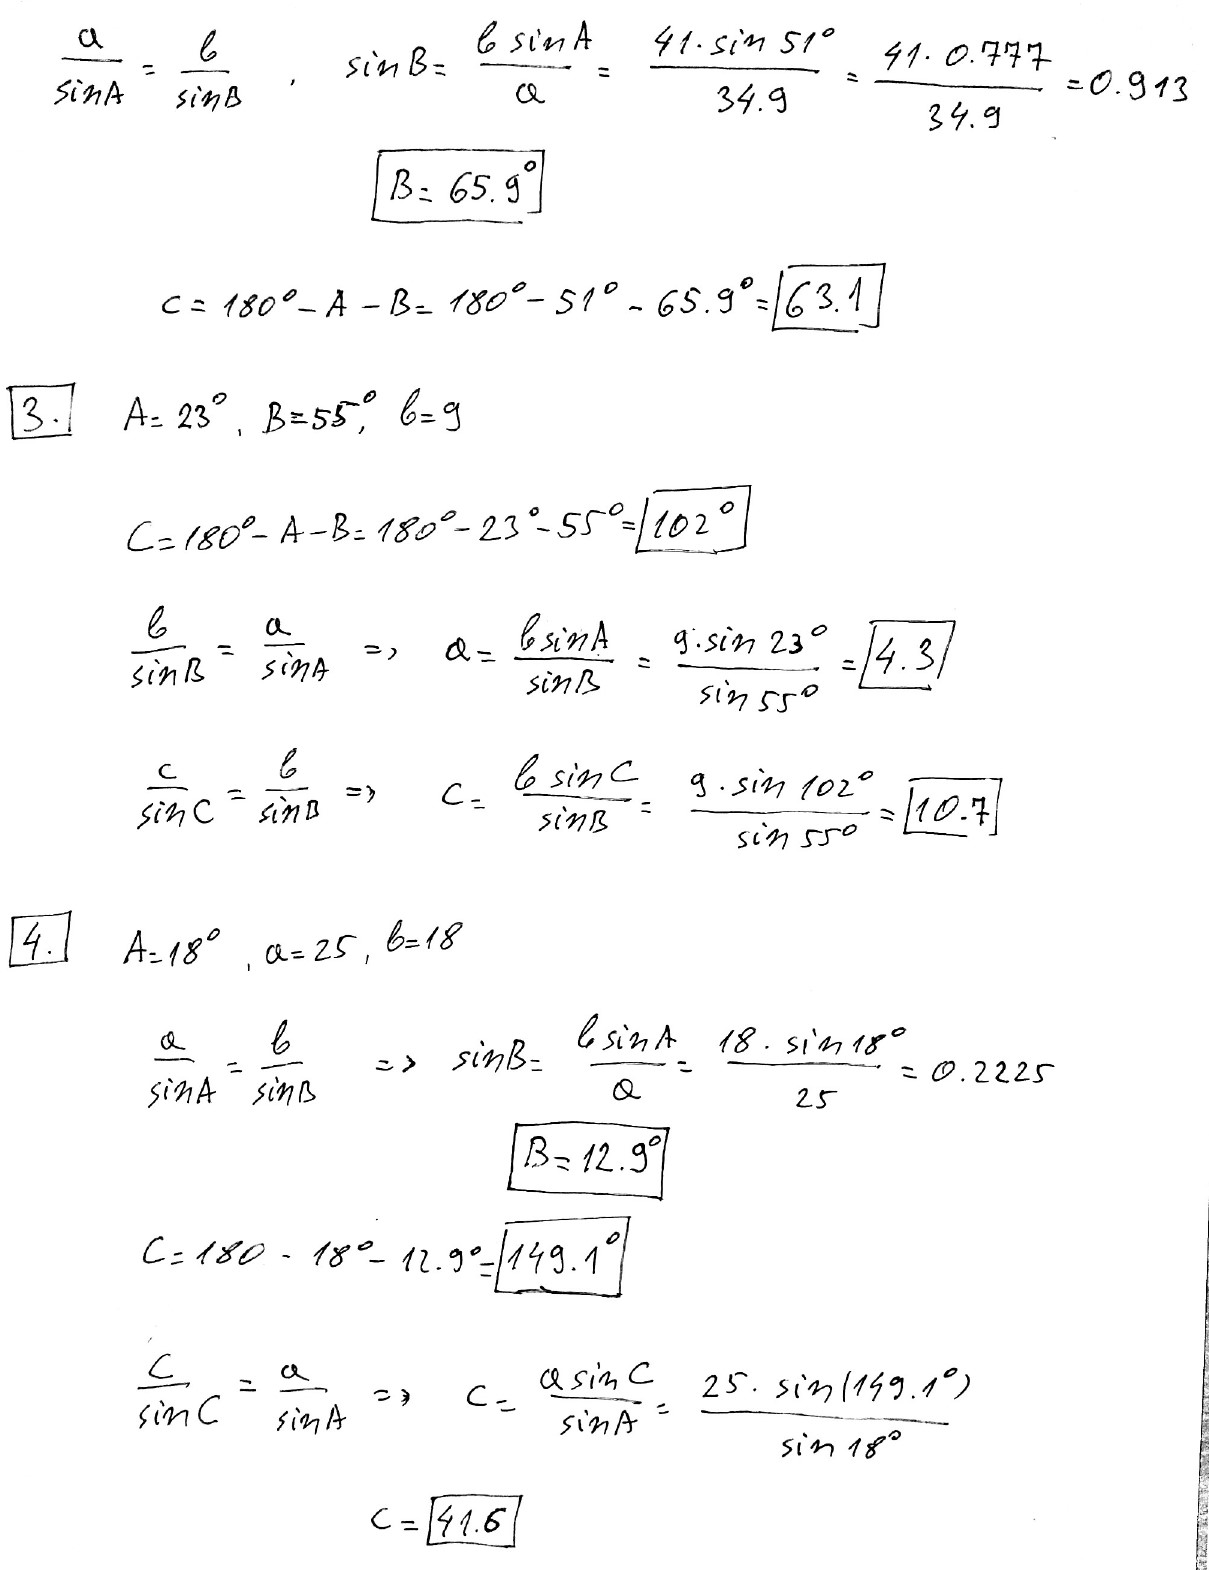 a/sinA = b/sinB , sinB = b sinA/a = 41·sin 51°/34.9 = 41·0.777/34.9 = 0.913
B = 65.9°
C = 180° - A - B = 180° - 51° - 65.9° = 63.1
3. A = 23°, B = 55°, b = 9
C = 180° - A - B = 180° - 23° - 55° = 102°
b/sinB = a/sinA => a = b sinA/sinB = 9·sin 23°/sin 55° = 4.3
c/sinC = b/sinB => c = b sinC/sinB = 9·sin 102°/sin 55° = 10.7
4. A = 18°, a = 25, b = 18
a/sinA = b/sinB => sinB = b sinA/a = 18·sin 18°/25 = 0.2225
B = 12.9°
C = 180 - 18° - 12.9° = 149.1°
c/sinC = a/sinA => c = a sinC/sinA = 25·sin(149.1°)/sin 18°
c = 41.6